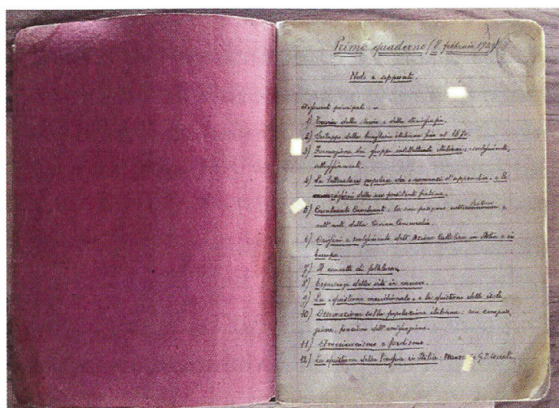 Primo quaderno (8 febbraio 1929)
Note e appunti.
Argomenti principali: –
1) Teoria della storia e della storiografia.
2) Sviluppo della borghesia italiana fino al 1870.
3) Formazione dei gruppi intellettuali italiani: svolgimento,
atteggiamenti.
4) La letteratura popolare dei "romanzi d'appendice" e le
ragioni della sua persistente fortuna.
5) Cavalcante Cavalcanti: la sua posizione nella struttura e
nell'arte della Divina Commedia.
6) Origini e svolgimento dell'Azione Cattolica in Italia e in
Europa.
7) Il concetto di folklore.
8) Esperienze della vita in carcere.
9) La "quistione meridionale" e la quistione delle isole.
10) Osservazioni sulla popolazione italiana: sua composi-
zione, funzione dell'emigrazione.
11) Americanismo e fordismo.
12) La quistione della lingua in Italia: Manzoni e G. I. Ascoli.